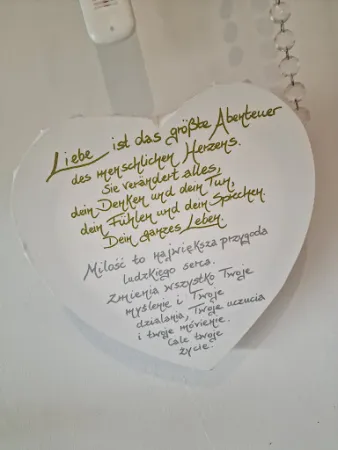 Liebe ist das größte Abenteuer
des menschlichen Herzens.
Sie verändert alles,
dein Denken und dein Tun,
dein Fühlen und dein Sprechen.
Dein ganzes Leben.
Miłość to największa przygoda
ludzkiego serca.
Zmienia wszystko Twoje
myślenie i Twoje
działania, Twoje uczucia
i twoje mówienie.
Całe twoje
życie.